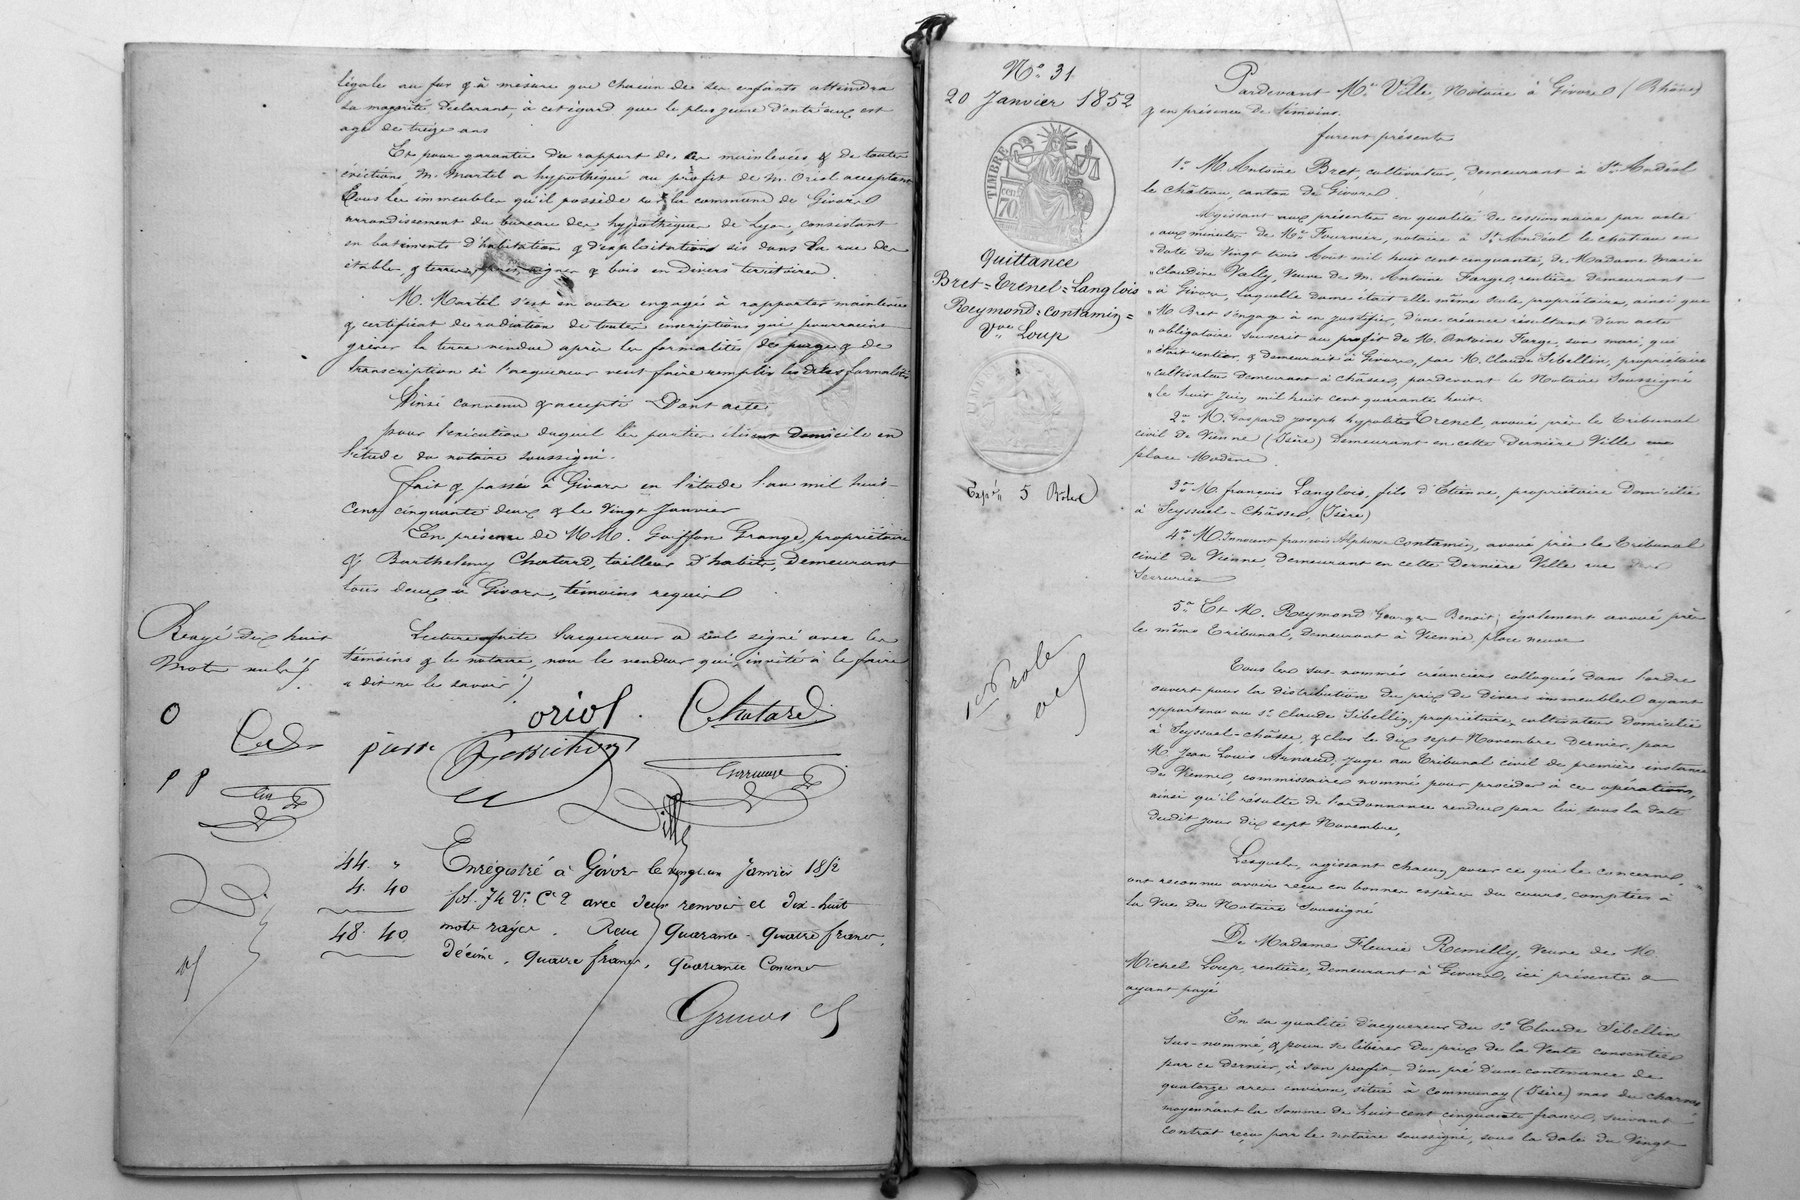 légale au fur & à mesure que chacun de ses enfants atteindra
sa majorité, déclarant, à cet égard que le plus jeune d'entr'eux est
agé de treize ans
Et pour garantie du rapport de ces mainlevées & de toutes
évictions M. Martel a hypothéqué au profit de M. Oriol acceptant
Tous les immeubles qu'il possède sur la commune de Givors
arrondissement du bureau des hypothèques de Lyon, consistant
en batiments d'habitation & d'exploitation sis dans la rue des
étables, & terres, prés, vignes & bois en divers territoires.
M. Martel s'est en outre engagé à rapporter mainlevée
& certificat de radiation de toutes inscriptions qui pourraient
gréver la terre vendue après les formalités de purge & de
transcription si l'acquereur veut faire remplir les dites formalités
Ainsi convenu & accepté Dont acte
pour l'exécution duquel les parties élisent domicile en
l'étude du notaire soussigné.
fait & passé à Givors en l'étude l'an mil huit
cent cinquante deux & le Vingt Janvier
En présence de MM. Goiffon Grange, propriétaire
& Barthelemy Chatard, tailleur d'habits, Demeurant
tous deux à Givors, témoins requis
Lecture faite l'acquereur a seul signé avec les
témoins & le notaire, non le vendeur qui, invité à le faire
a dit ne le savoir
Rayé dix huit
mots nuls
oriol Chatard
Ville
44. "
4. 40
48. 40
Enregistré à Givors le vingt un Janvier 1852
fol. 74 V. C. 2 avec deux renvois et dix-huit
mots rayés. Reçu quarante-quatre francs,
décime, quatre francs, quarante Centimes
N° 31
20 Janvier 1852
TIMBRE
70
Quittance
Bret = Trenel = Langlois
Reymond = Contamin =
Vve Loup
Expé" 5 Roles
1er role
Pardevant Me Ville, Notaire à Givors (Rhône)
& en présence de témoins.
furent présents
1° M. Antoine Bret, cultivateur, demeurant à St Andéol
le château, canton de Givors.
Agissant aux présentes en qualité de cessionnaire par acte
" aux minutes de Me Fournier, notaire à St Andéol le château en
" date du Vingt trois Aout mil huit cent cinquante, de Madame Marie
" Claudine Vally, Veuve de M. Antoine Farge, rentière demeurant
" à Givors, laquelle dame était elle même seule propriétaire, ainsi que
" M. Bret s'engage à en justifier, d'une créance résultant d'un acte
" obligatoire souscrit au profit de M. Antoine Farge, son mari, qui
" était rentier, & demeurait à Givors, par M. Claude Sibellin, propriétaire
" cultivateur demeurant à Chasse, pardevant le Notaire Soussigné
" le huit Juin mil huit cent quarante huit.
2° M. Gaspard Joseph hypolite Trenel, avoué près le Tribunal
civil de Vienne (Isère) Demeurant en cette Dernière Ville
place Modène.
3° M. françois Langlois, fils d'Etienne, propriétaire Domicilié
à Seyssuel-Châsse, (Isère)
4° M. Innocent françois Alphonse Contamin, avoué près le Tribunal
civil de Vienne, demeurant en cette Dernière Ville rue des
Serruries
5° Et M. Reymond Georges Benoit, également avoué près
le même Tribunal, demeurant à Vienne, place neuve
Tous les sus-nommés créanciers colloqués dans l'ordre
ouvert pour la distribution du prix de divers immeubles ayant
appartenu au Sr Claude Sibellin, propriétaire, cultivateur Domicilié
à Seyssuel-châsse, & clos le dix sept Novembre Dernier, par
M. Jean Louis Arnaud, juge au Tribunal civil de première instance
de Vienne, commissaire nommé pour procéder à ces opérations,
ainsi qu'il résulte de l'ordonnance rendue par lui sous la date
dudit jour dix sept Novembre,
Lesquels, agissant chacun pour ce qui le concerne,
ont reconnu avoir reçu en bonnes espèces du cours, comptées à
la Vue du Notaire Soussigné
De Madame Fleurie Remilly, Veuve de M.
Michel Loup, rentière, demeurant à Givors, ici présente &
ayant payé
En sa qualité d'acquereur du Sr Claude Sibellin
sus-nommé, & pour se libérer du prix de la Vente consentie
par ce dernier, à son profit, d'un pré d'une contenance de
quatorze ares environ, situé à Communay (Isère) mas du charme
moyennant la somme de huit cent cinquante francs, suivant
contrat reçu par le notaire soussigné, sous la date du Vingt